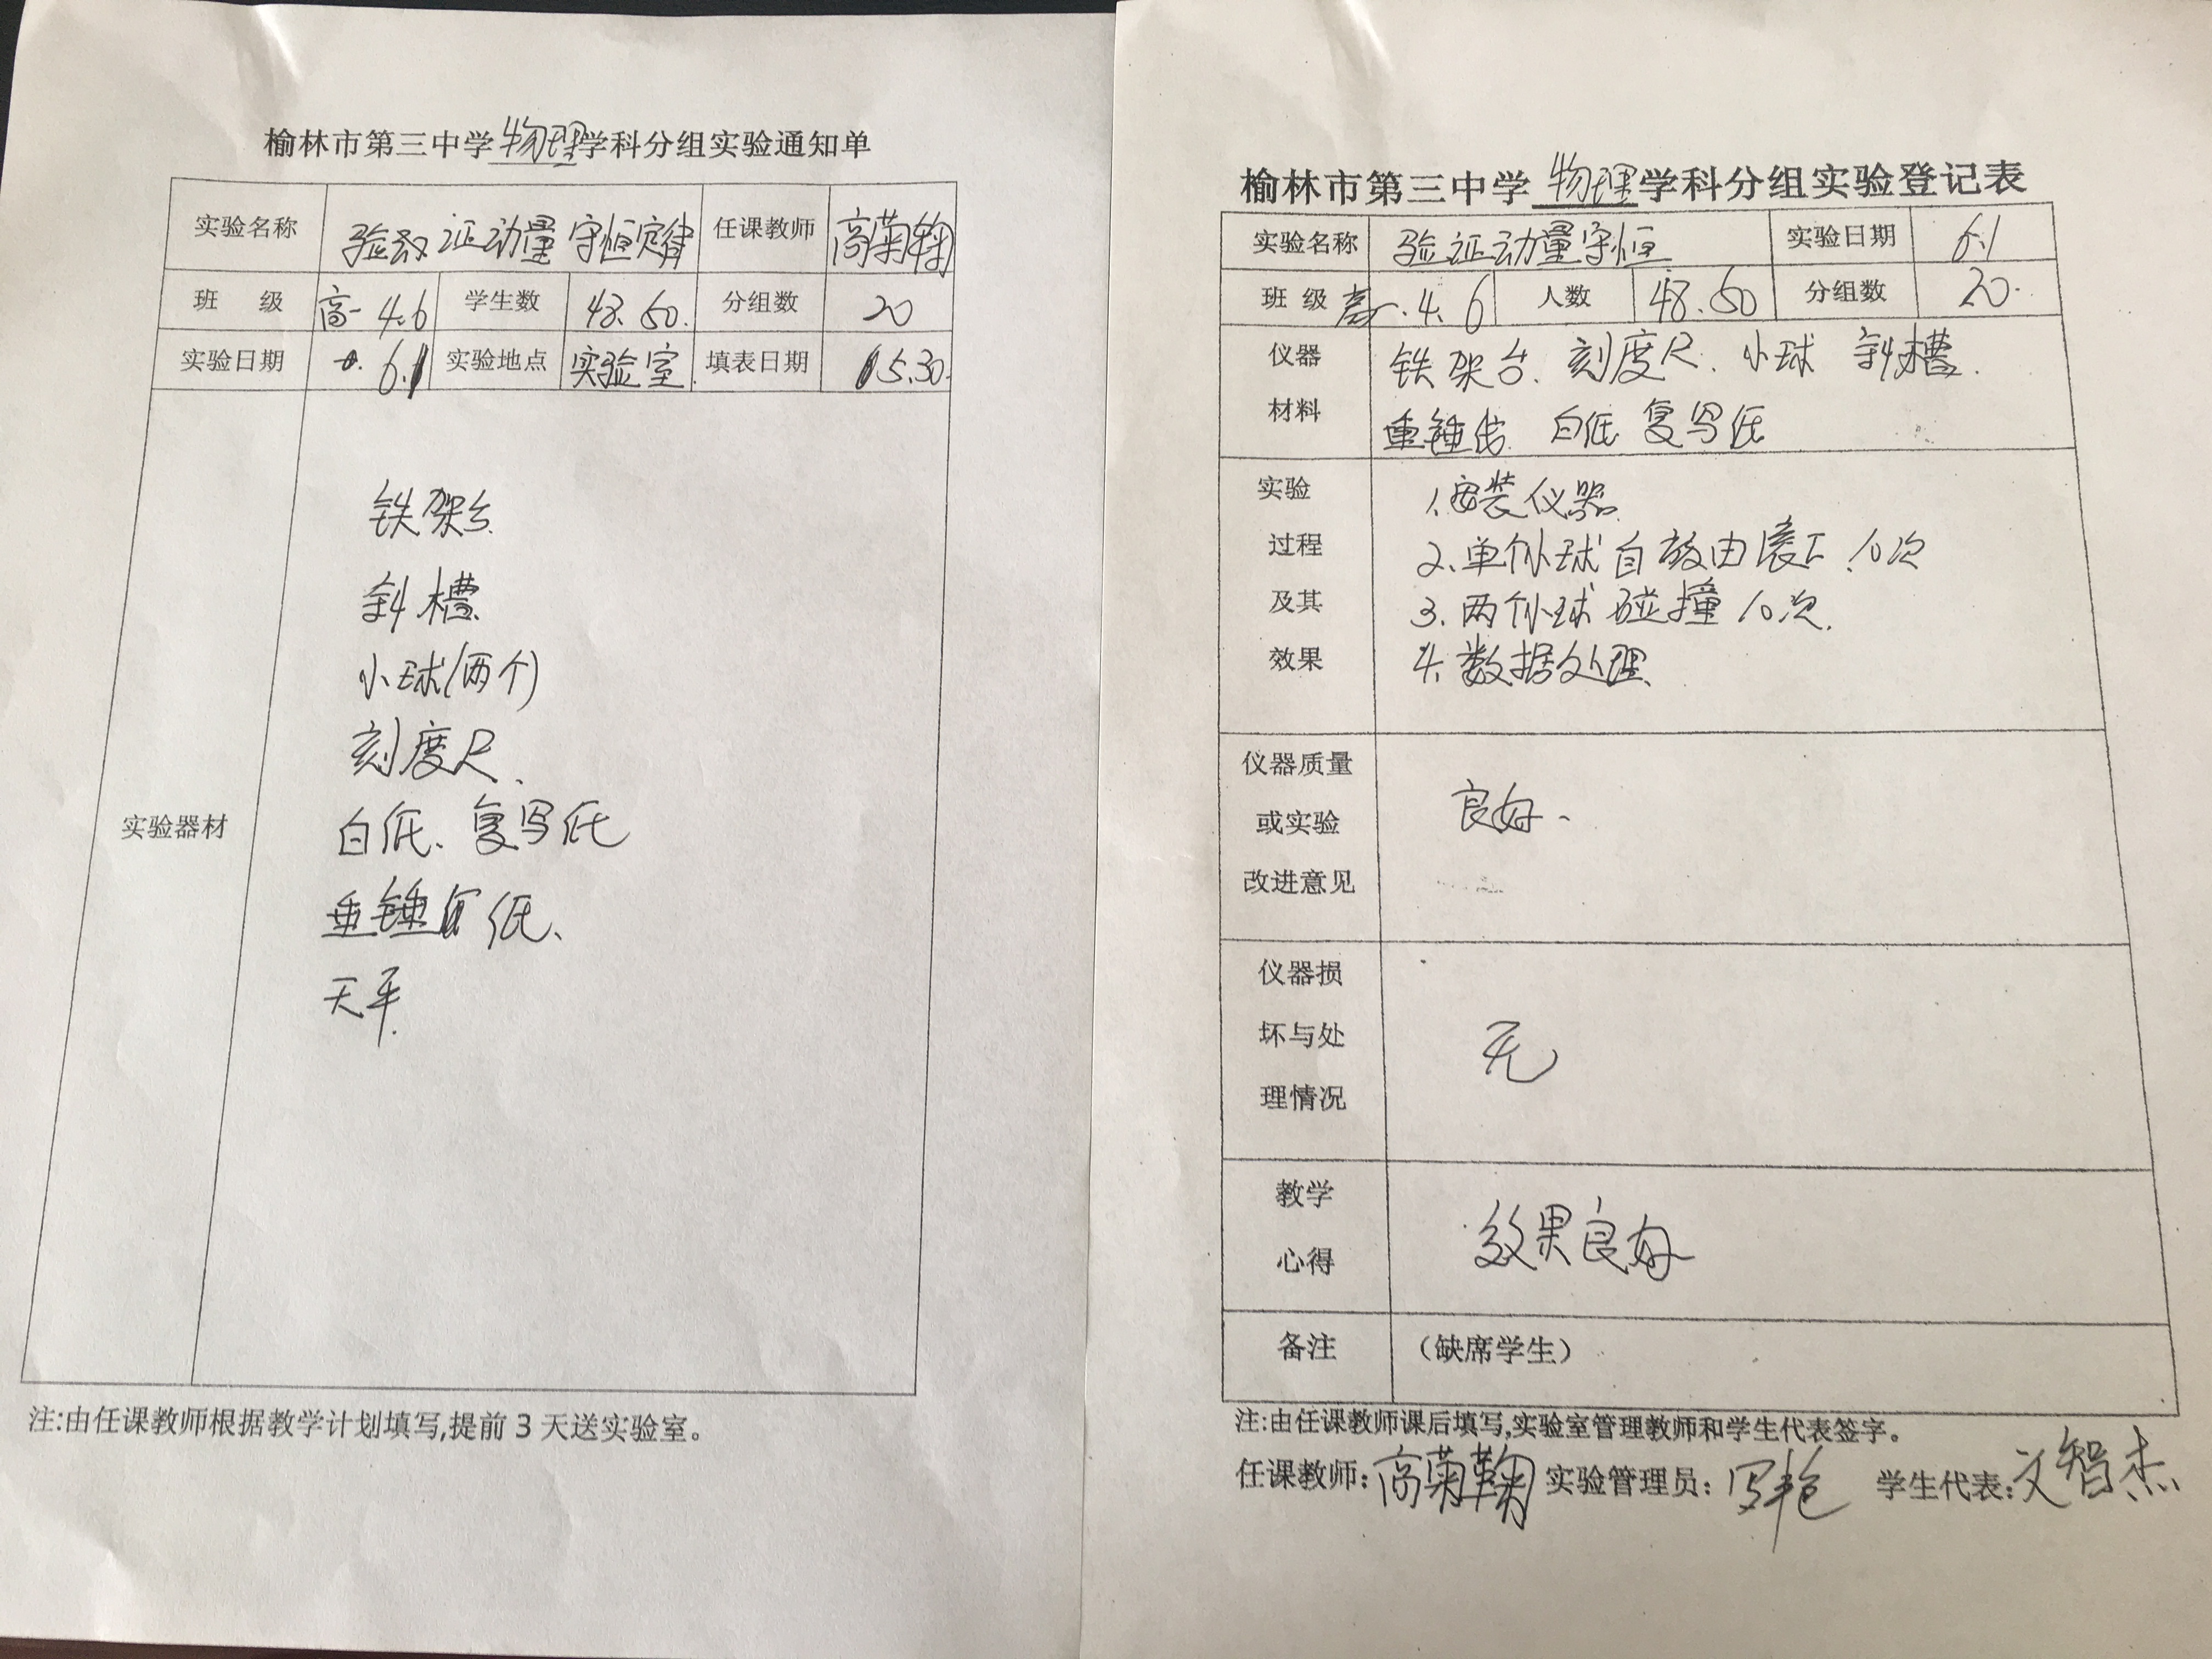 榆林市第三中学物理学科分组实验通知单
实验名称 验证动量守恒定律 任课教师 高菊鞠
班 级 高一 4.6 学生数 48. 50. 分组数 20
实验日期 6.1 实验地点 实验室. 填表日期 5.30.
实验器材
铁架台.
斜槽.
小球(两个)
刻度尺、
白纸、复写纸
重锤 纸、
天平.
注:由任课教师根据教学计划填写,提前3天送实验室。
榆林市第三中学物理学科分组实验登记表
实验名称 验证动量守恒 实验日期 6.1
班 级 高一.4.6 人数 48.50 分组数 20.
仪器材料
铁架台. 刻度尺. 小球 斜槽.
重锤线 白纸 复写纸
实验过程及其效果
1.安装仪器.
2.单个小球自 由滚下10次
3.两个小球碰撞10次.
4.数据处理.
仪器质量或实验改进意见
良好.
仪器损坏与处理情况
无
教学心得
效果良好
备注 (缺席学生)
注:由任课教师课后填写,实验室管理教师和学生代表签字。
任课教师:高菊鞠 实验管理员: 学生代表:文智杰